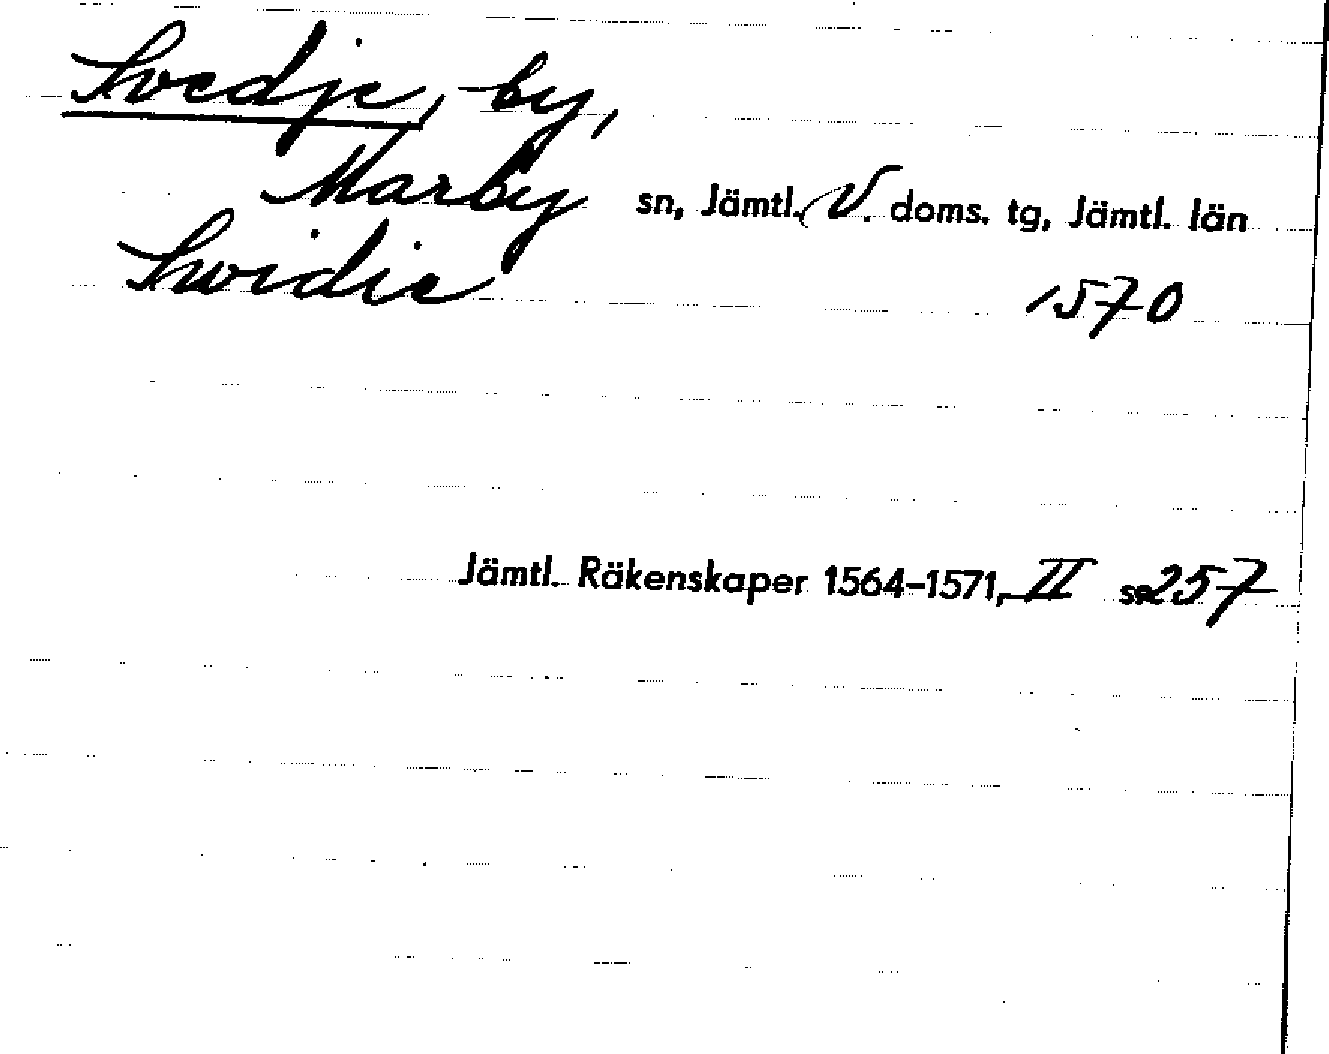 Svedje, by,
Marby sn, Jämtl. V. doms. tg, Jämtl. län
Swidie 1570
Jämtl. Räkenskaper 1564-1571, II s. 257